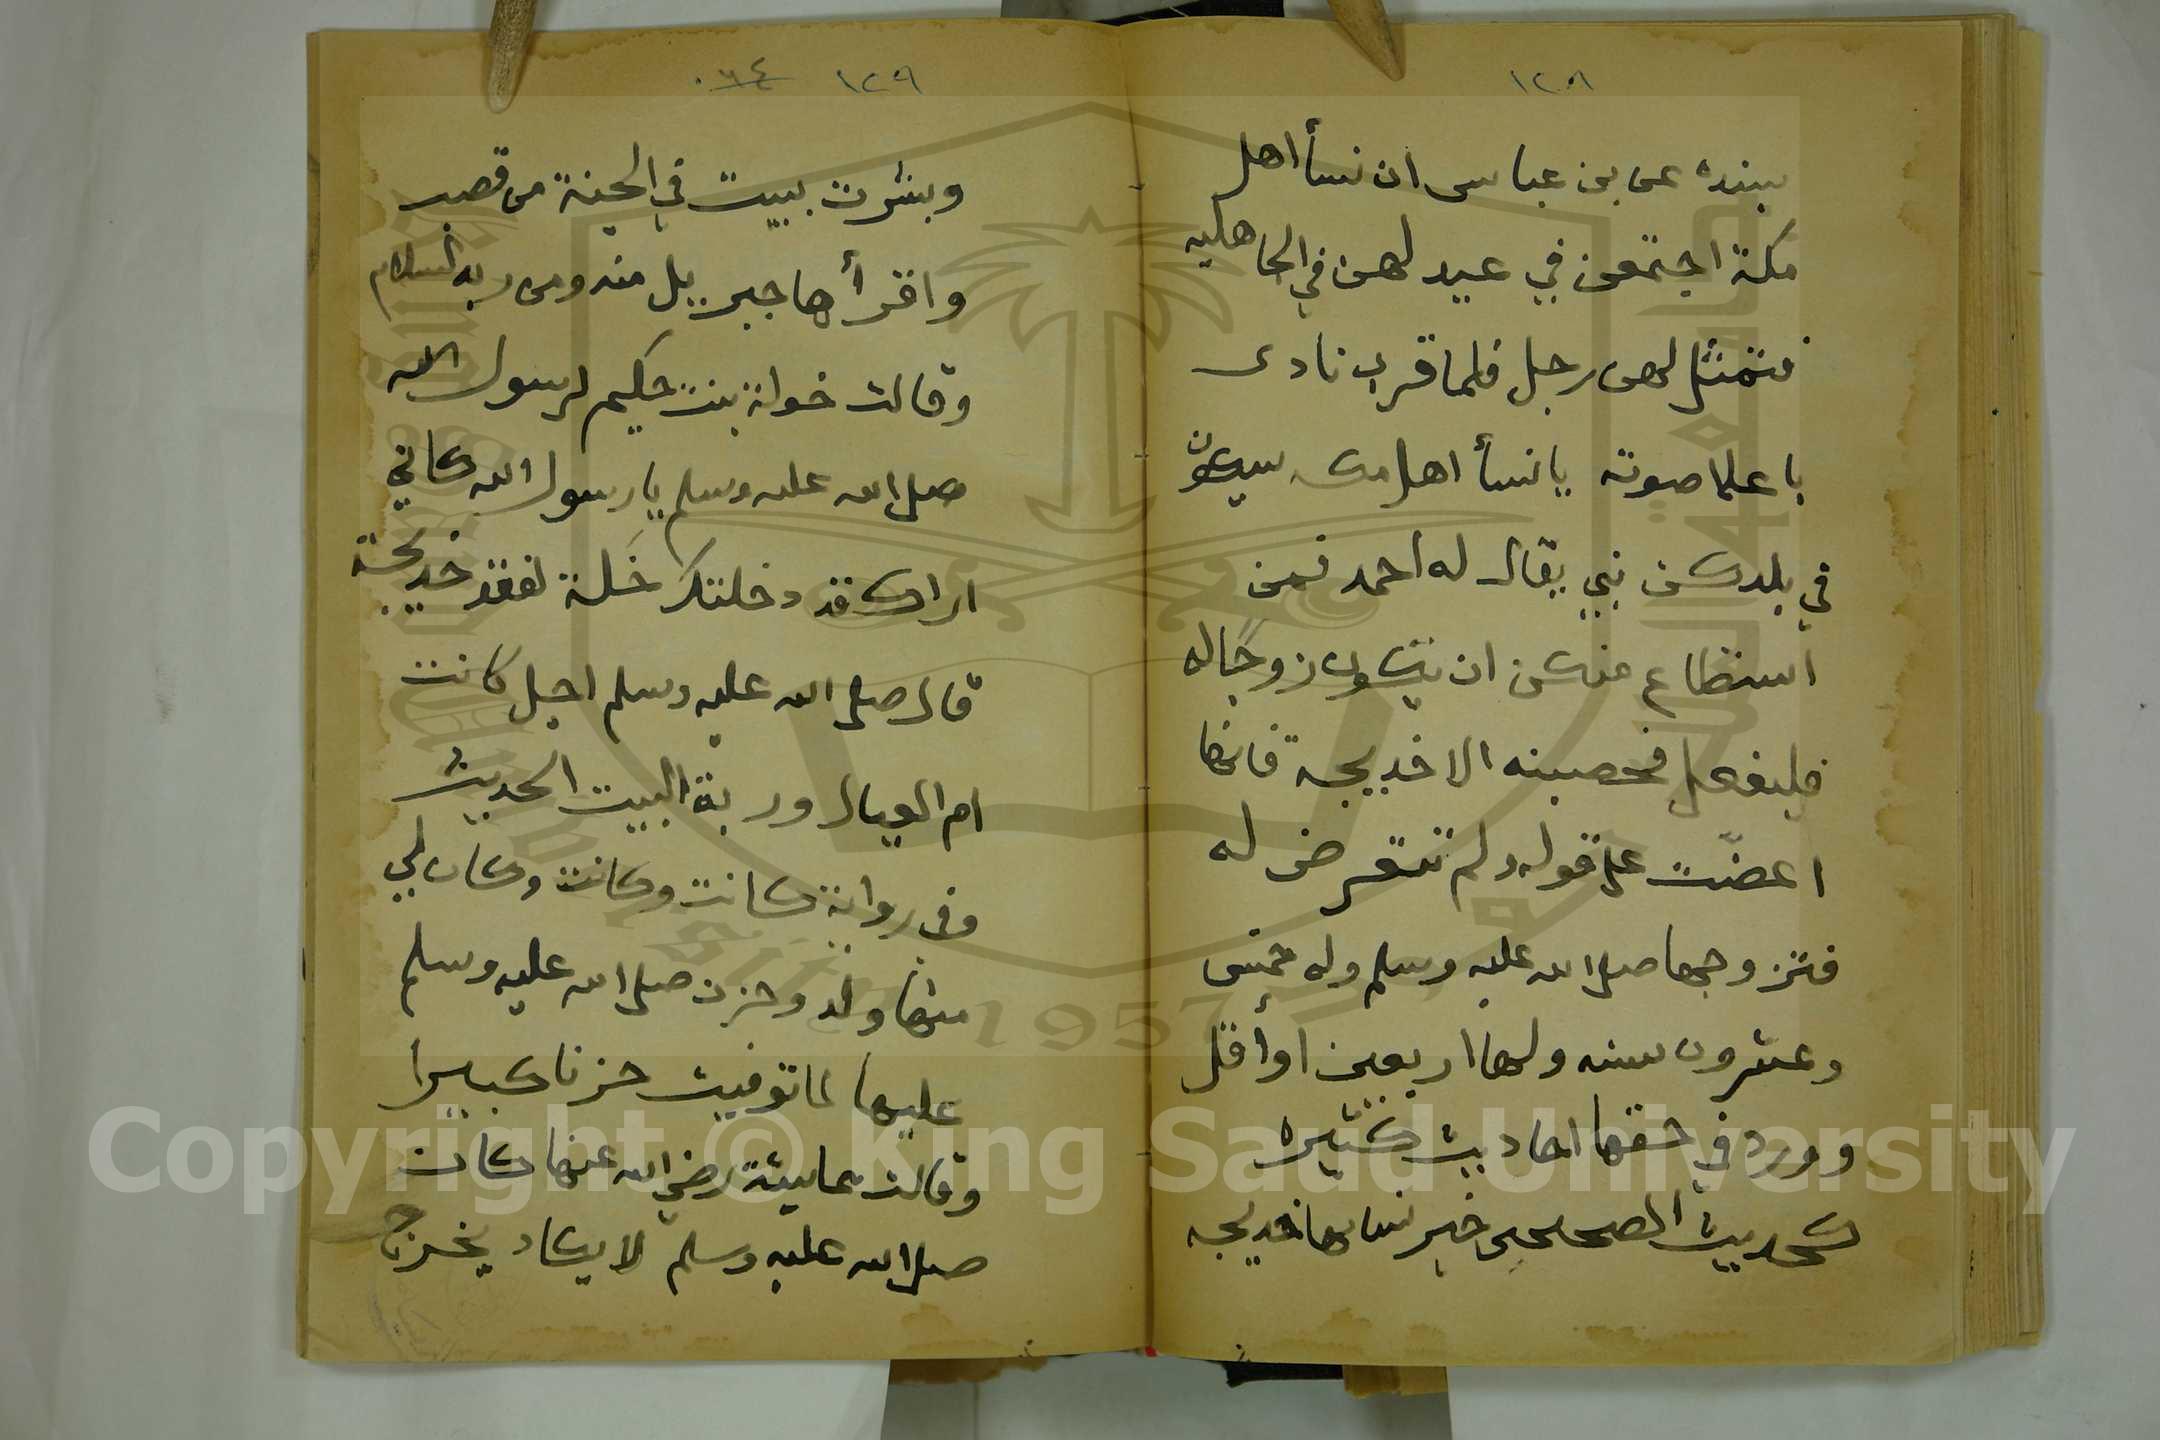 ١٢٨
بسنده عن بن عباس ان نسأ اهل
مكة اجتمعن في عيد لهن في الجاهليه
فتمثل لهن رجل فلما قرب نادى
باعلا صوته يا نسأ اهل مكه سيكون
في بلدكن نبي يقال له احمد فمن
استطاع منكن ان يتكون زوجًا له
فليفعل فحصبنه الا خديجة فانها
اعضّت على قوله ولم تتعرض له
فتزوجها صلى الله عليه وسلم وله خمس
وعشرون سنه ولها اربعين او أقل
وورد في حقها احاديث كثيره
كحديث الصحيحين خير نسائها خديجه
١٢٩ ٠٦٤
وبشرت ببيت في الجنة من قصب
واقرأها جبريل منه ومن ربه السلام
وقالت خولة بنت حكيم لرسول الله
صلى الله عليه وسلم يا رسول الله كاني
اراك قد دخلتك خَلة لفقد خديجة
قال صلى الله عليه وسلم اجل كانت
ام العيال وربة البيت الحديث
وفي رواية كانت وكانت وكان لي
منها ولد وحزن صلى الله عليه وسلم
عليها لما توفيت حزنا كبيرا
وقالت عايشة رضي الله عنها كان
صلى الله عليه وسلم لا يكاد يخرج
Copyright © King Saud University
1957